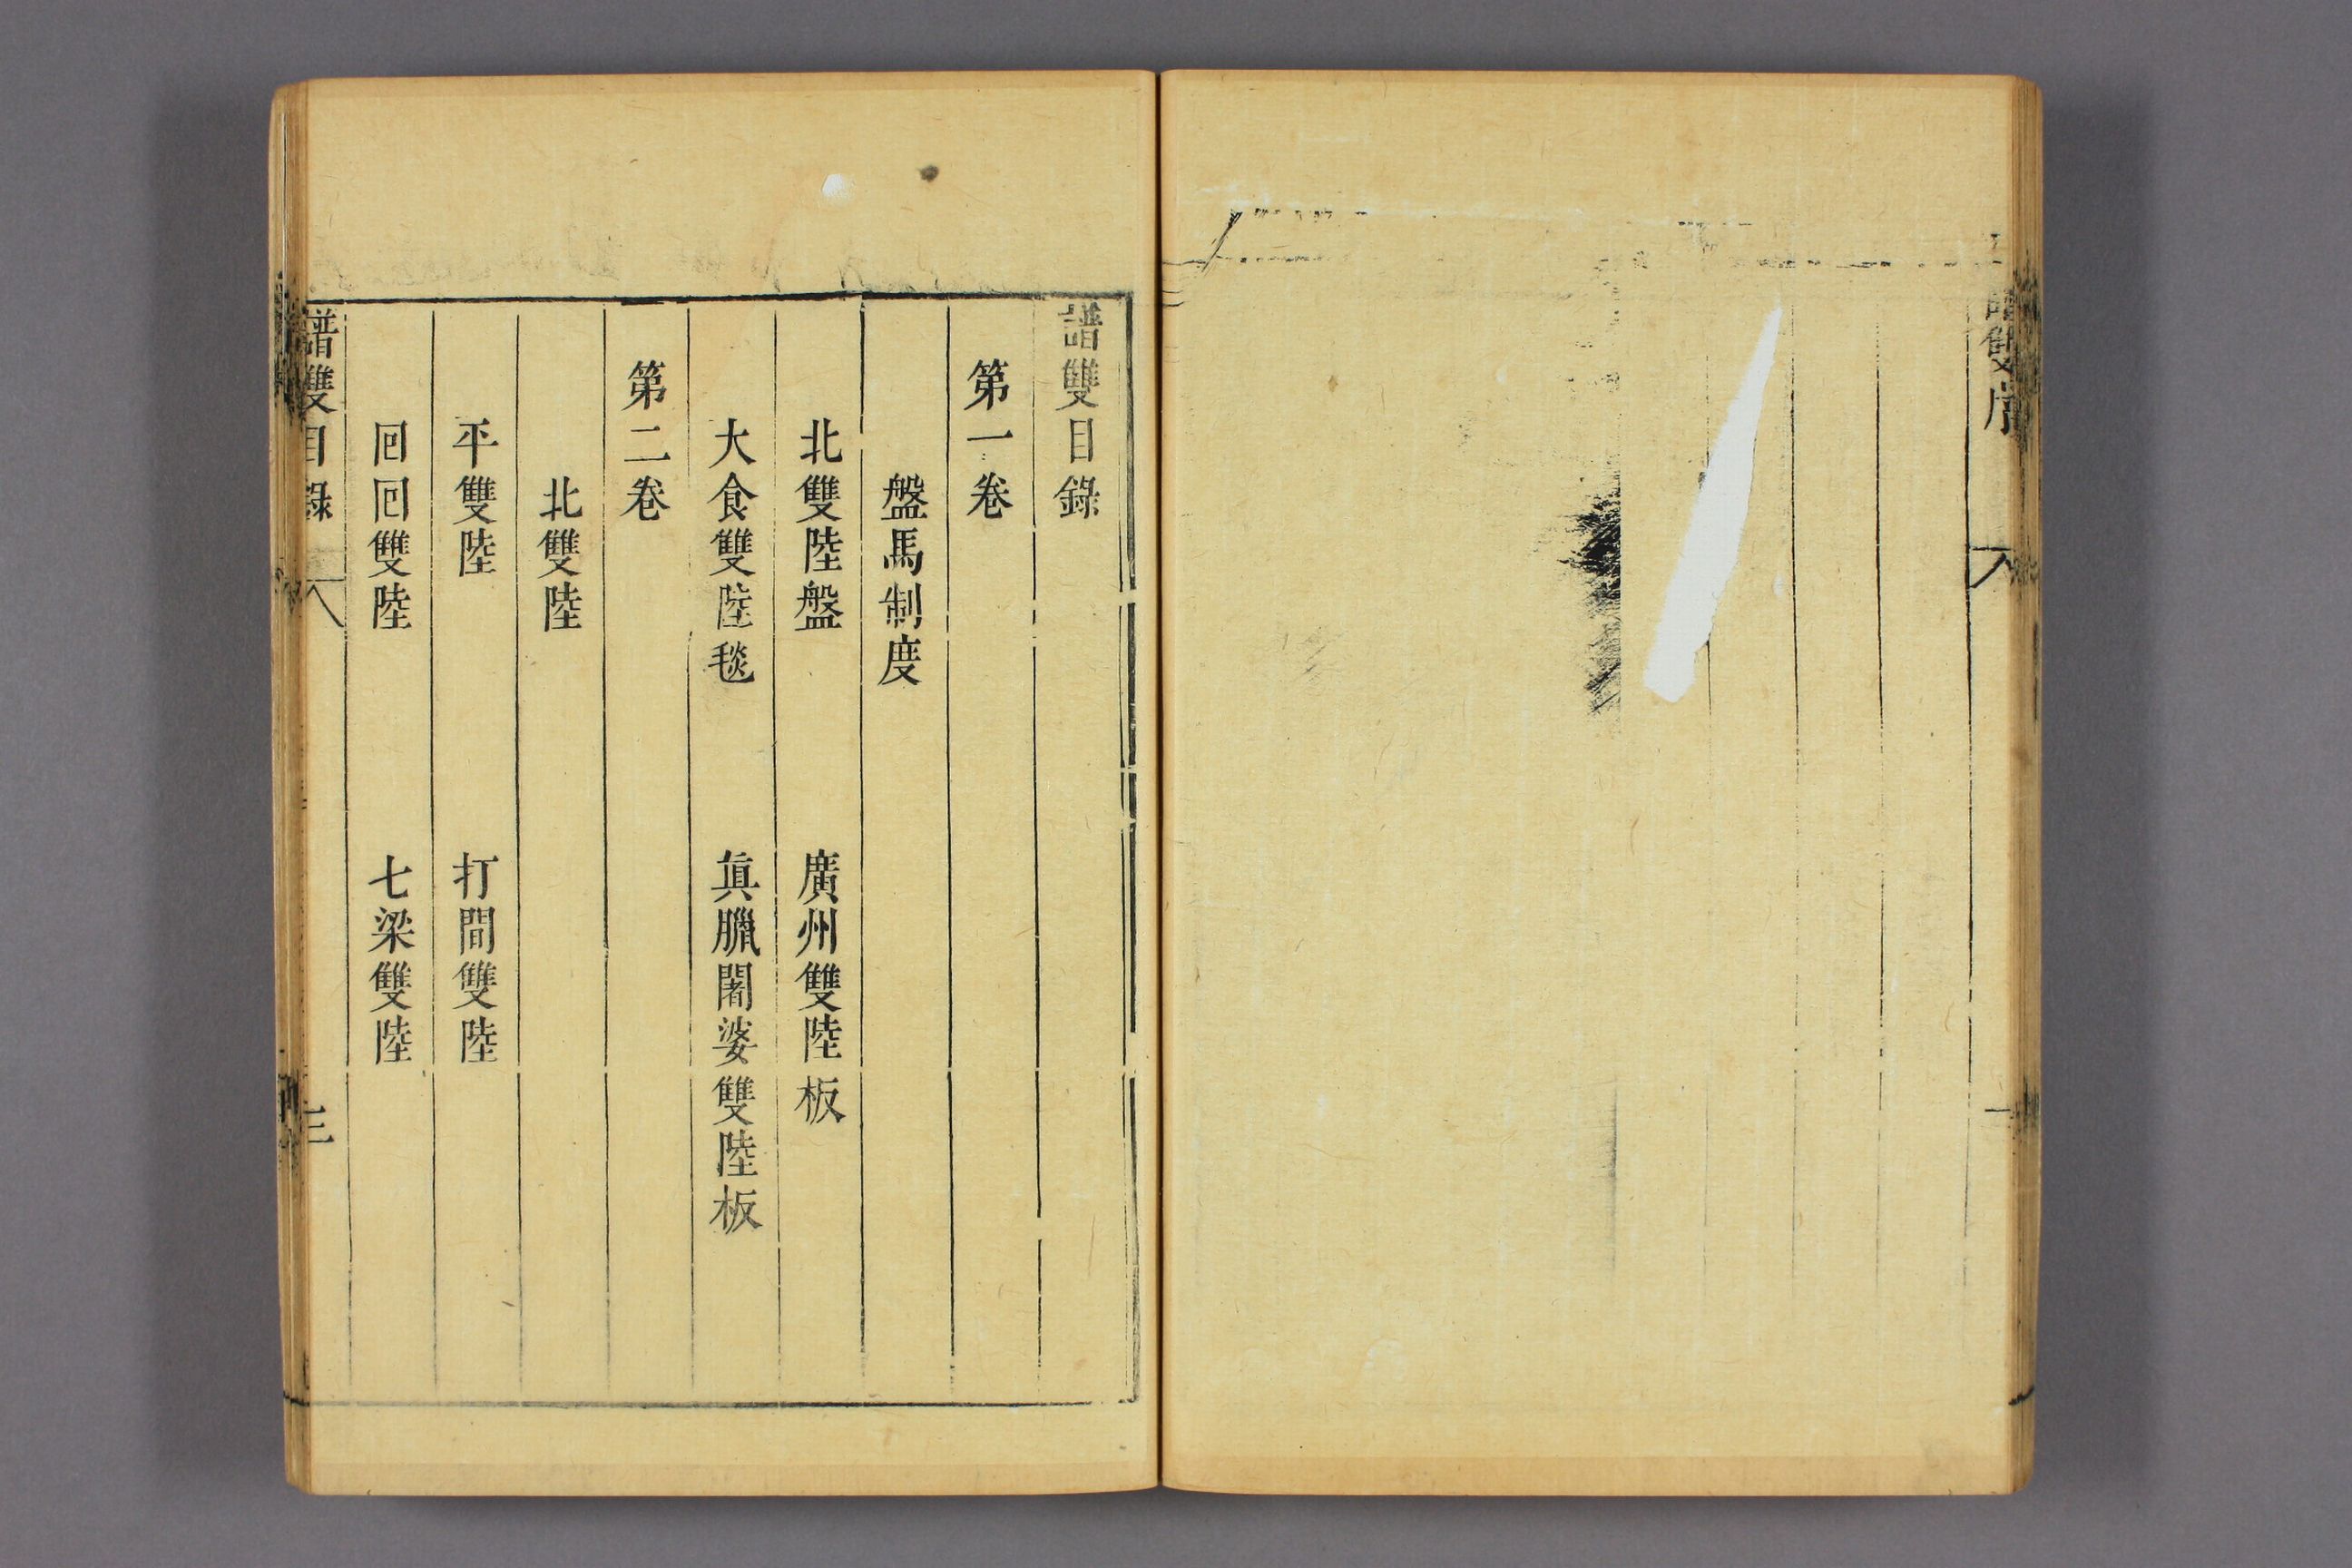 譜雙序
一
譜雙目錄
第一卷
盤馬制度
北雙陸盤　廣州雙陸板
大食雙陸毯　眞臘闍婆雙陸板
第二卷
北雙陸
平雙陸　打間雙陸
回回雙陸　七梁雙陸
譜雙目錄
三